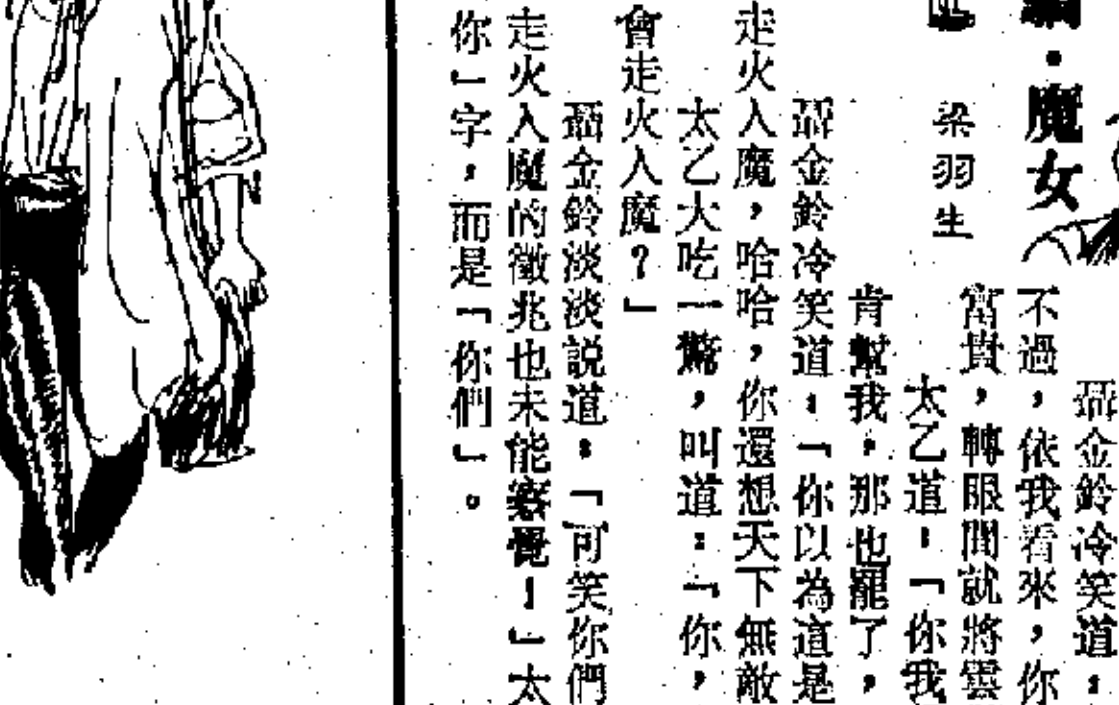 ・魔女
梁羽生
聶金鈴冷笑道：
不過，依我看來，你
富貴，轉眼間就將雲
太乙道：「你我
肯幫我，那也罷了，
聶金鈴冷笑道：「你以為這是
走火入魔，哈哈，你還想天下無敵
太乙大吃一驚，叫道：「你，
會走火入魔？」
聶金鈴淡淡説道：「可笑你們
走火入魔的徵兆也未能察覺！」太
你」字，而是「你們」。